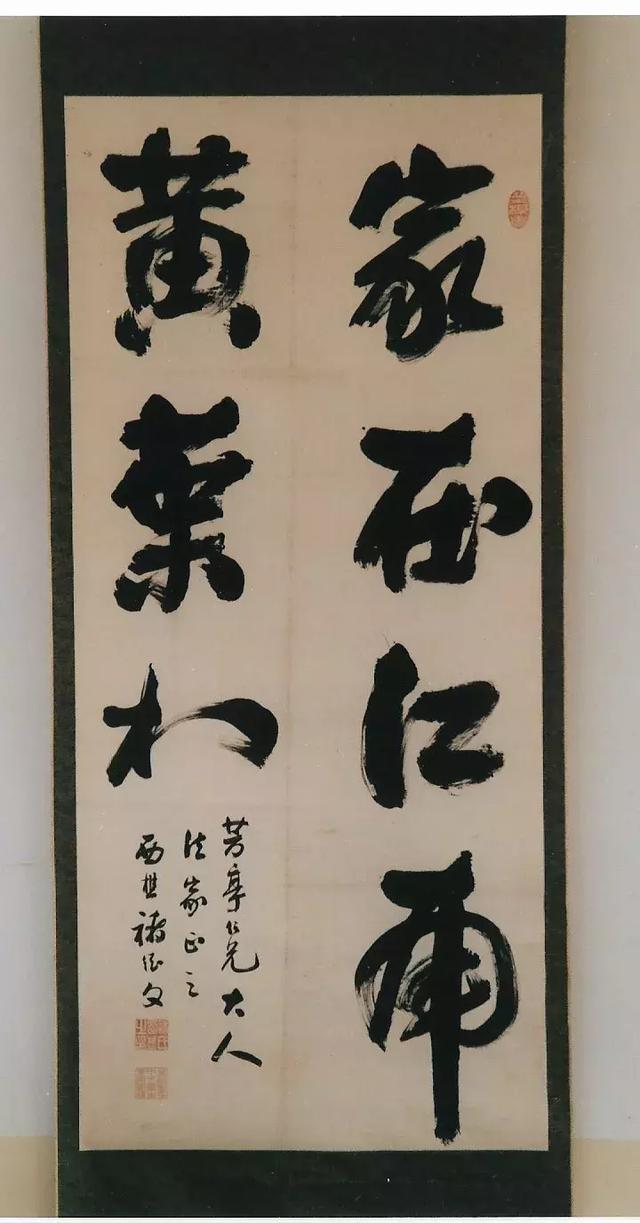 家在江南
黄葉村
芳亭仁兄大人
法家正之
西 褚德文